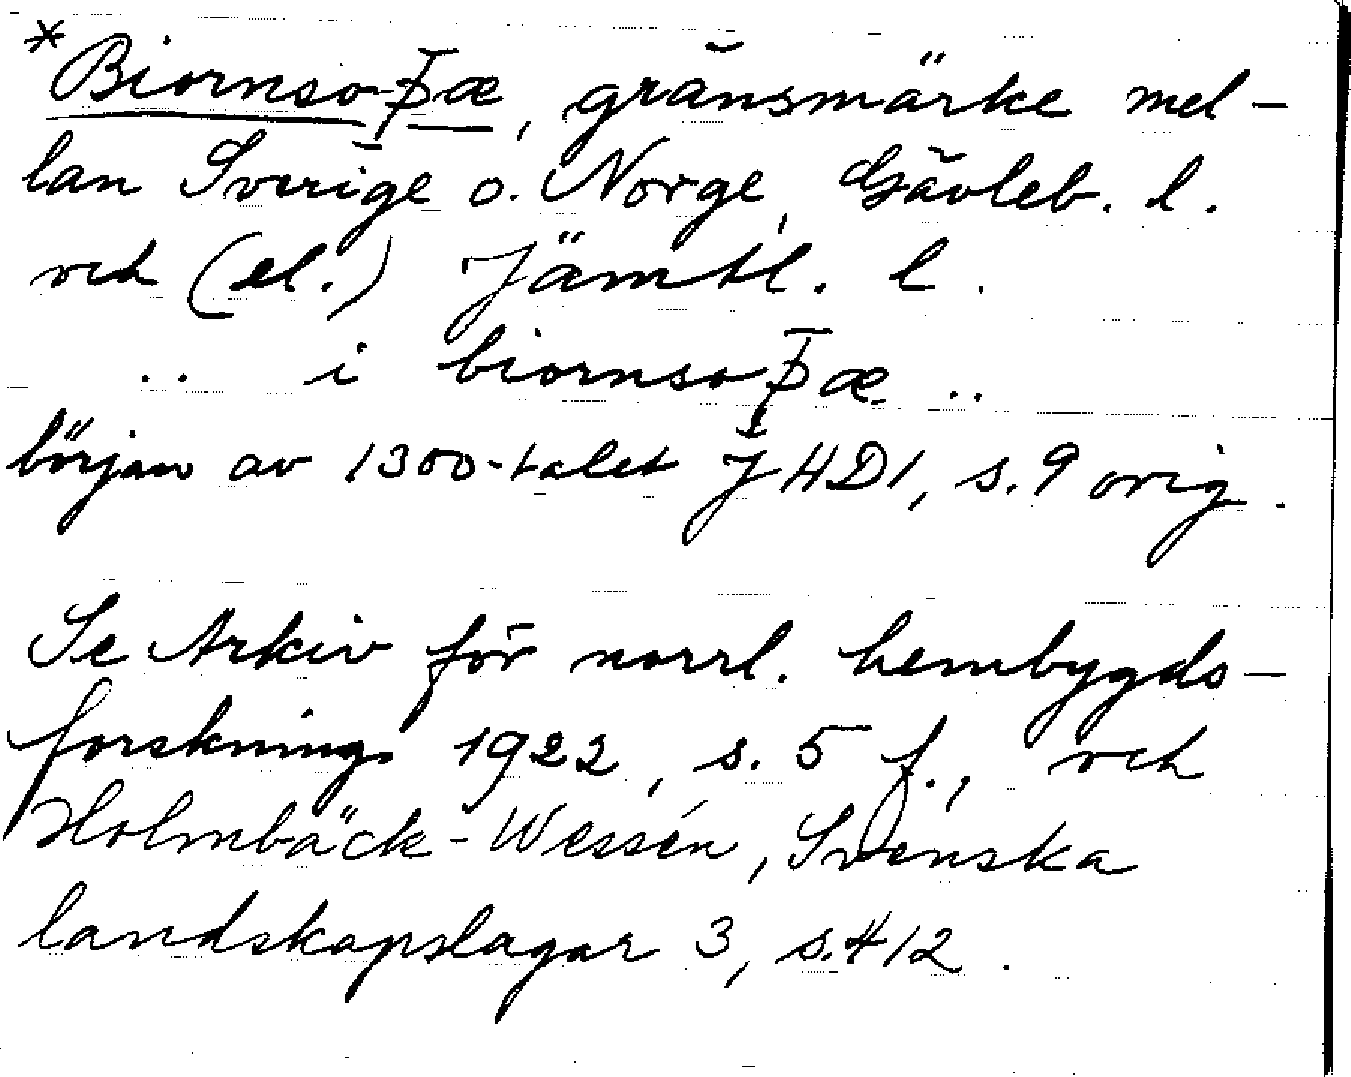 *Biornsoꝥæ, gränsmärke mel-
lan Sverige o. Norge, Gävleb. l.
och (el.) Jämtl. l.
.. i biornsoꝥæ ..
början av 1300-talet JHD1, s. 9 orig.
Se Arkiv för norrl. hembygds-
forskning 1922, s. 5 f., och
Holmbäck-Wessén, Svenska
landskapslagar 3, s. 412.